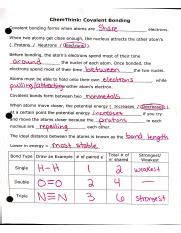 ChemThink: Covalent Bonding
Covalent bonding forms when atoms share electrons.
When two atoms get close enough, the nucleus attracts the other atom's
( Protons / Neutrons / Electrons ).
Before bonding, the atom's electrons spend most of their time
around the nuclei of each atom. Once bonded, the
electrons spend most of their time between the two nuclei.
Atoms must be able to hold onto their own electrons while
pulling/attracting another electrons.
Covalent bonds form between two nonmetals
When atoms move closer, the potential energy ( Increases / Decreases ).
At a certain point the potential energy increases if you try
and move the atoms closer because the protons in each
nucleus are repelling each other.
The ideal distance between the atoms is known as the bond length
Lower in energy = most stable
Bond Type Draw an Example # of paired e Total # of e- shared Strongest/ Weakest
Single H-H 1 2 weakest
Double O=O 2 4 —
Triple N≡N 3 6 strongest